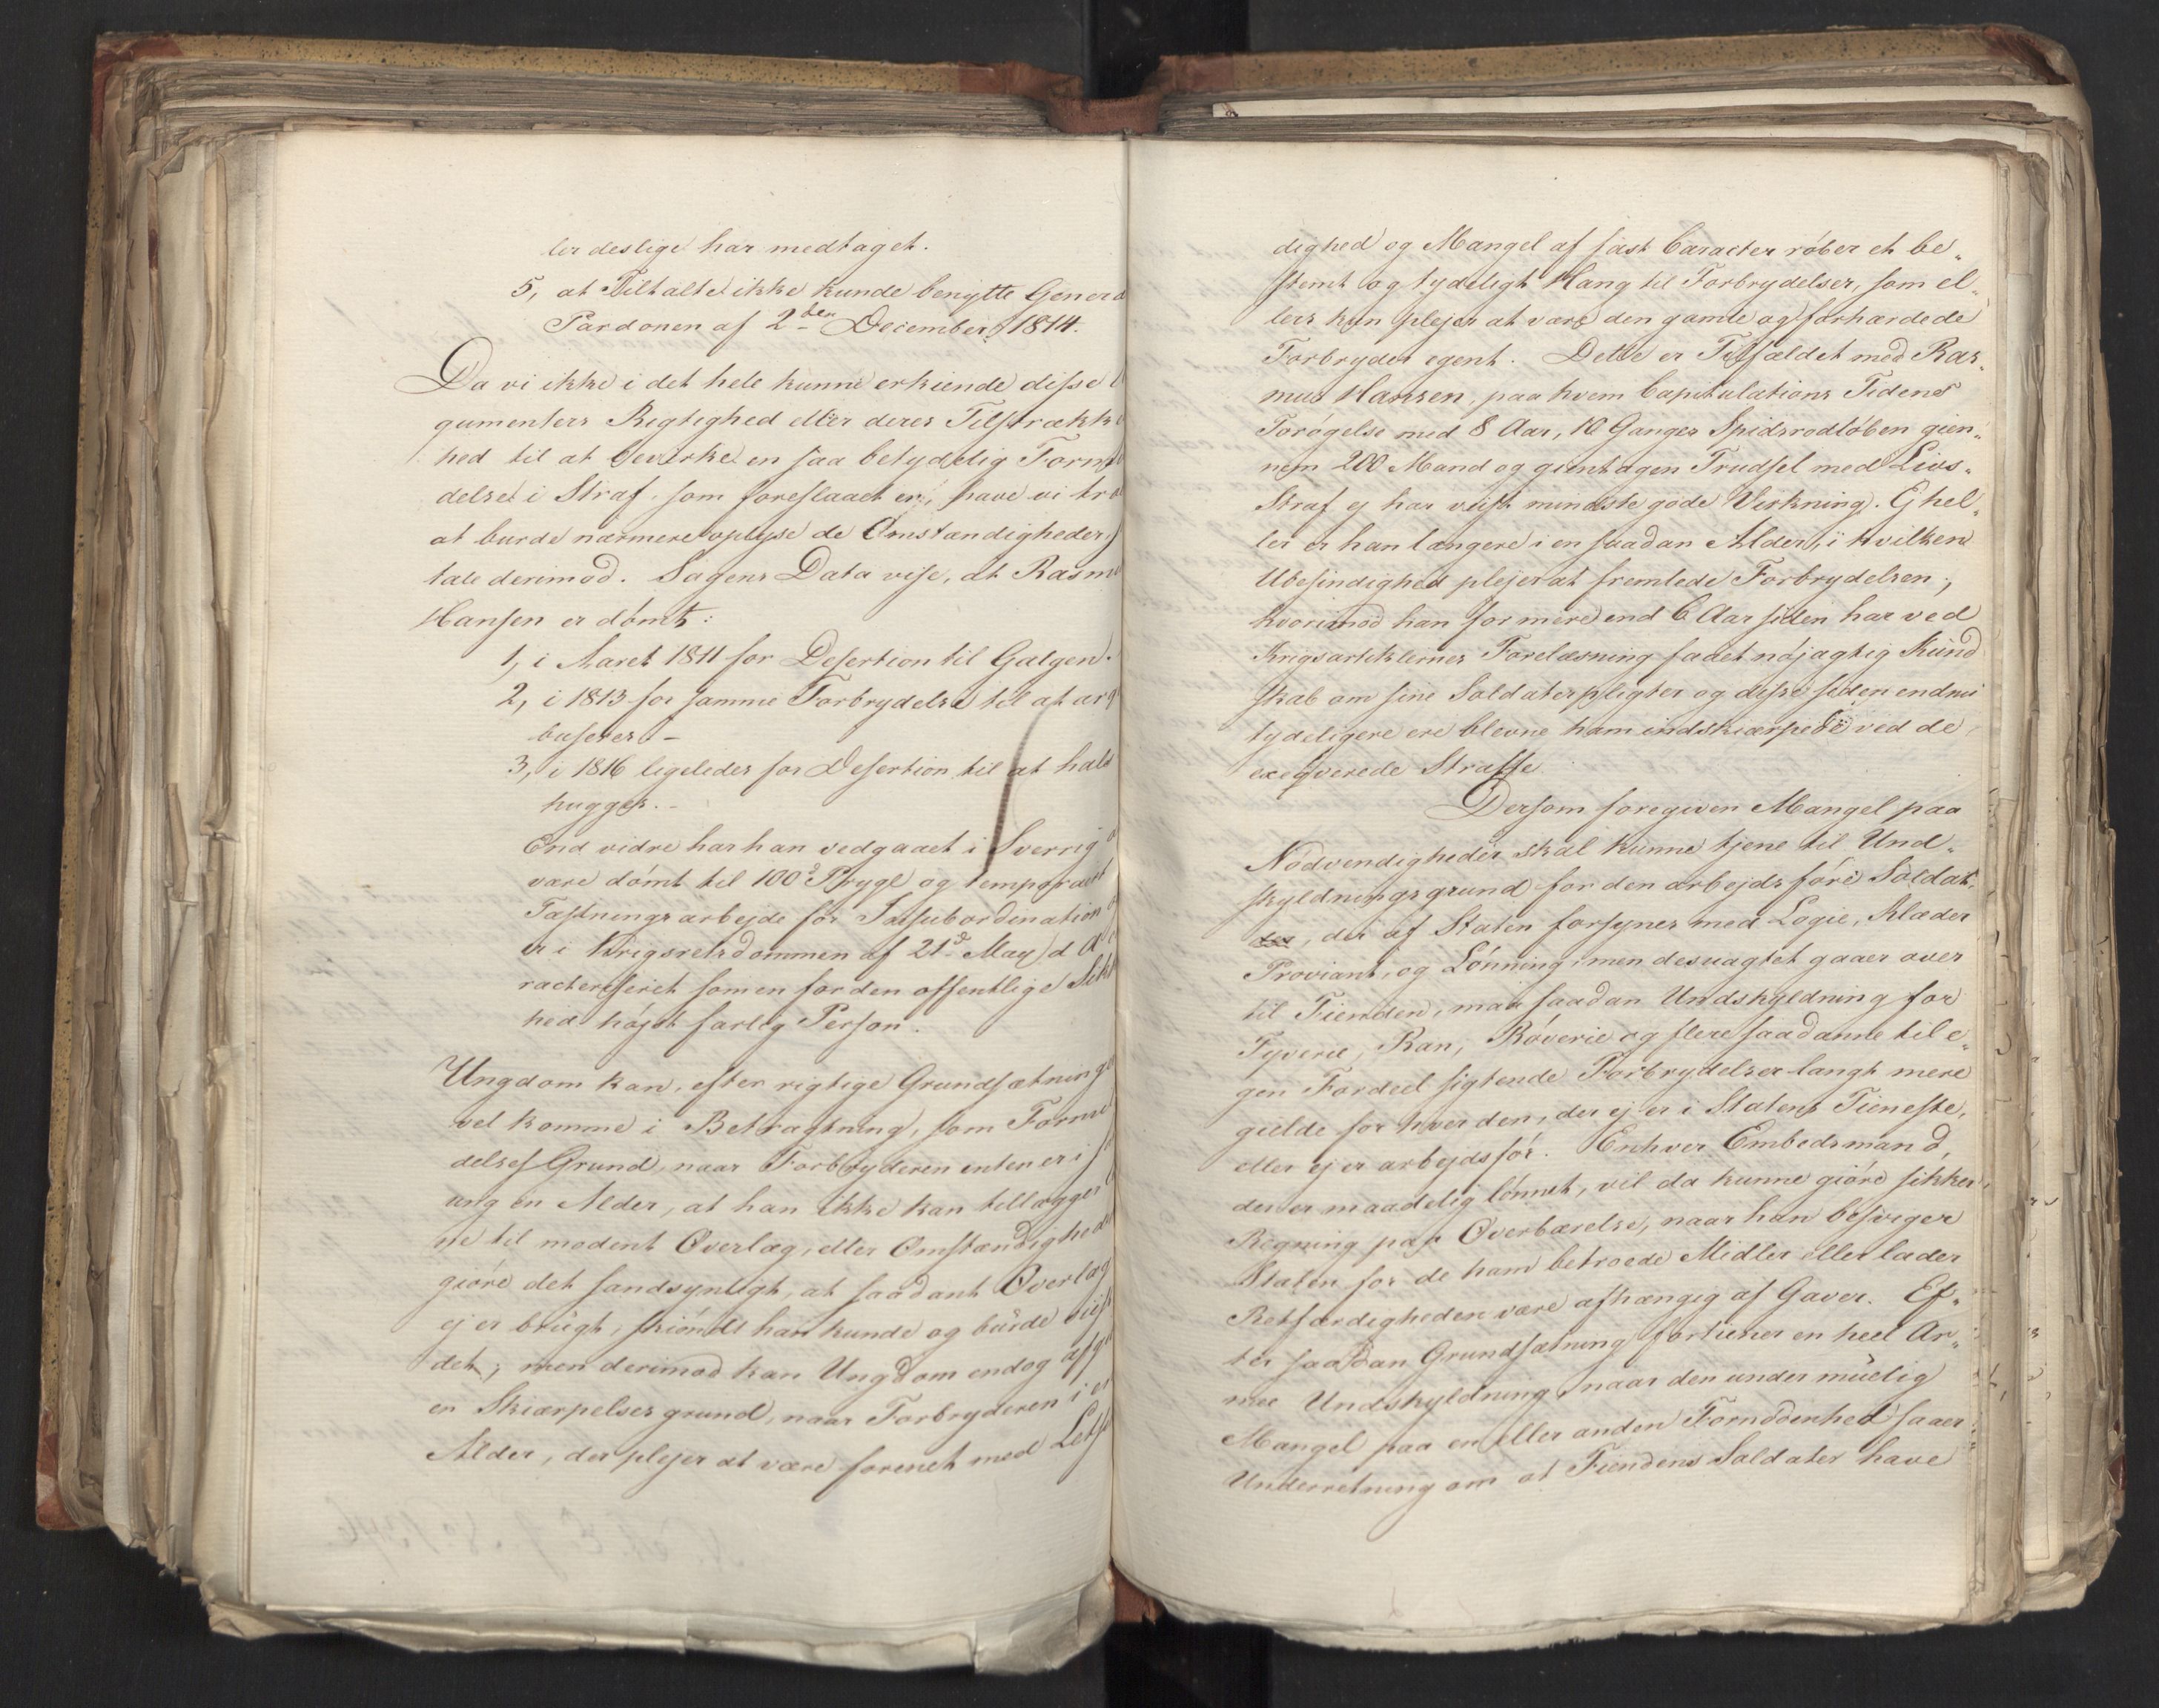 ler deslige har medtaget.
5, at Tiltalte ikke kunde benytte Genera
Pardonen af 2den December 1814.
Da vi ikke i det hele kunne erkiende disse
gumenters Rigtighed eller deres Tilstrække
hed til at bevirke en saa betydelig Formil
delse i Straf, som foreslaaet er, have vi tro
at burde nærmere oplyse de Omstændigheder,
tale derimod. Sagens Data vise, at Rasmu
Hansen er dömt:
1, i Aaret 1811 for Desertion til Galgen.
2, i 1813 for samme Forbrydelse til at arq
buseres. -
3, i 1816 ligeledes for Desertion til at hals
hugges. -
End vidre har han vedgaaet i Sverrig
være dömt til 100de Prygl og temporairt
Fæstningsarbejde for Insubordination
er i Krigsretsdommen af 21de May d. A.
racteriseret som en for den offentlige Sik
hed höjst farlig Person.
Ungdom kan, efter rigtige Grundsætninge
vel komme i Betragtning, som Formil
delses Grund, naar Forbryderen enten er i
ung en Alder, at han ikke kan tillægges
ne til modent Overlæg, eller Omstændighede
giöre det sandsynligt, at saadant Overlæg
ej er brugt, skiöndt han kunde og burde
det; men derimod kan Ungdom endog afg
en Skiærpelses grund, naar Forbryderen i en
Alder, der plejer at være forenet med Lets
dighed og Mangel af fast Caracter röber et be„
stemt og tydeligt Hang til Forbrydelser, som el„
lers kun plejer at være den gamle og forhærdede
Forbryder egent. Dette er Tilfældet med Ras„
mus Hansen, paa hvem Capitulations Tidens
Forögelse med 8 Aar, 10 Ganges Spidsrodlöben gien„
nem 200 Mand og gientagen Trudsel med Livs„
Straf ej har viist mindste gode Virkning. Ej hel„
ler er han længere i en saadan Alder, i hvilken
Ubesindighed plejer at fremlede Forbrydelsen;
hvorimod han for mere end 6 Aar siden har ved
Krigsartiklernes Forelæsning faaet nöjagtig Kund
skab om sine Soldaterpligter og disse siden endnu
tydeligere ere blevne ham indskiærpede ved de
exeqverede Straffe.
Dersom foregiven Mangel paa
Nödvendigheder skal kunne tjene til Und„
skyldningsgrund for den arbejdsföre Soldat,
der, der af Staten forsynes med Logie, Klæder
Proviant, og Lönning, men desuagtet gaaer over
til Fienden, maa saadan Undskyldning for
Tyverie, Ran, Röverie og flere saadanne til e„
gen Fordeel sigtende Forbrydelser langt mere
gielde for hver den, der ej er i Statens Tieneste,
eller ej er arbejdsför. Enhver Embedsmand,
der er maadelig lönnet, vil da kunne giöre sikker
Regning paa Overbærelse, naar han besviger
Staten for de ham betroede Midler eller lader
Retfærdigheden være afhængig af Gaver. Ef„
ter saadan Grundsætning fortiener en heel Ar„
mee Undskyldning, naar den under muelig
Mangel paa en eller anden Fornödenhed faaer
Underretning om at Fiendens Soldater have